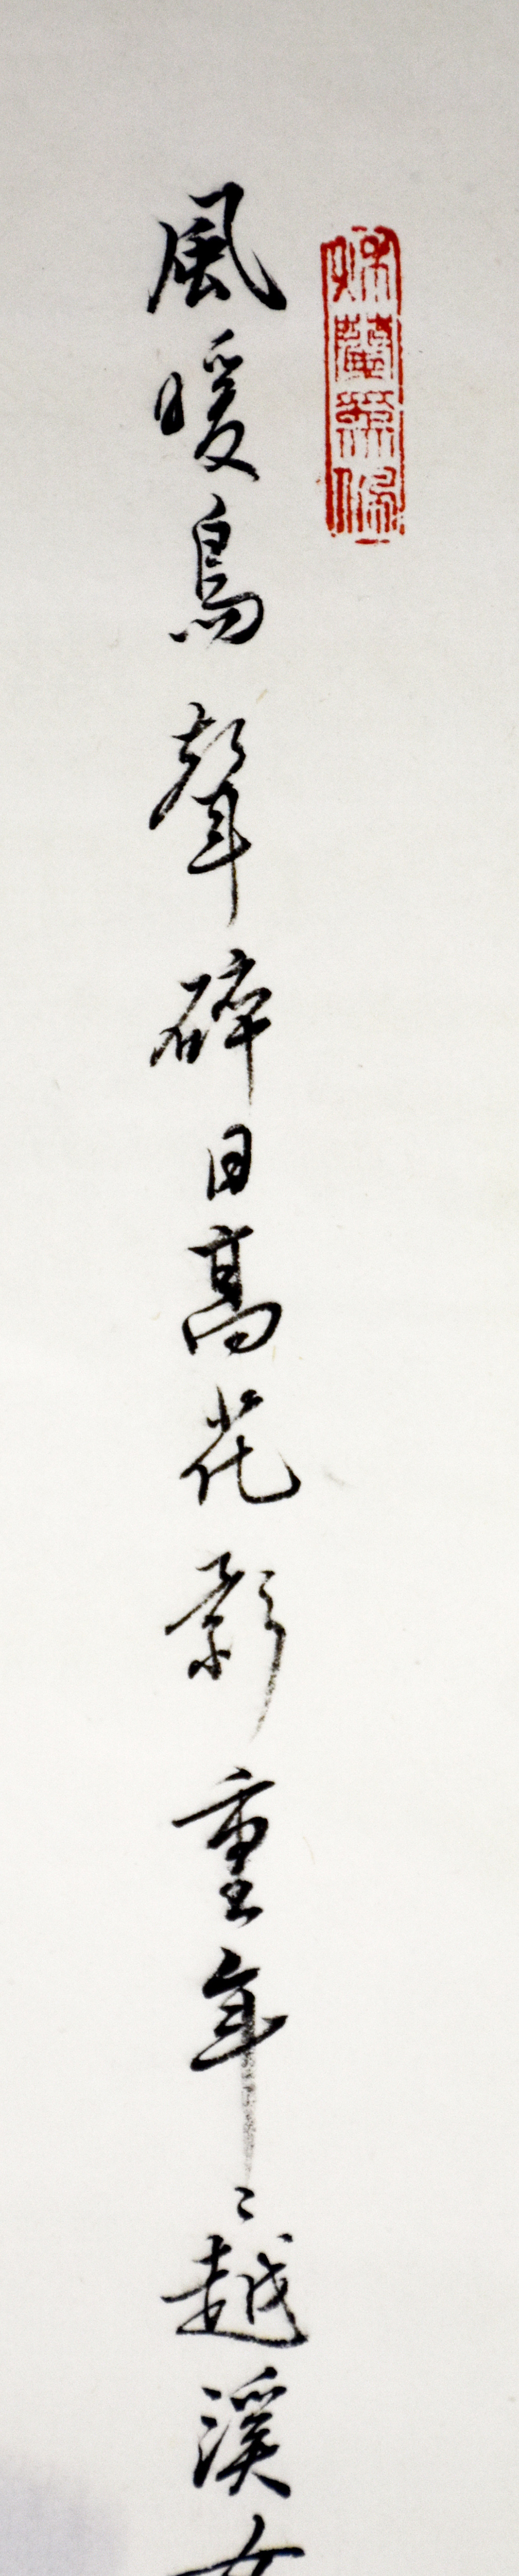 風暖鳥聲碎日高花影重年〻越溪女